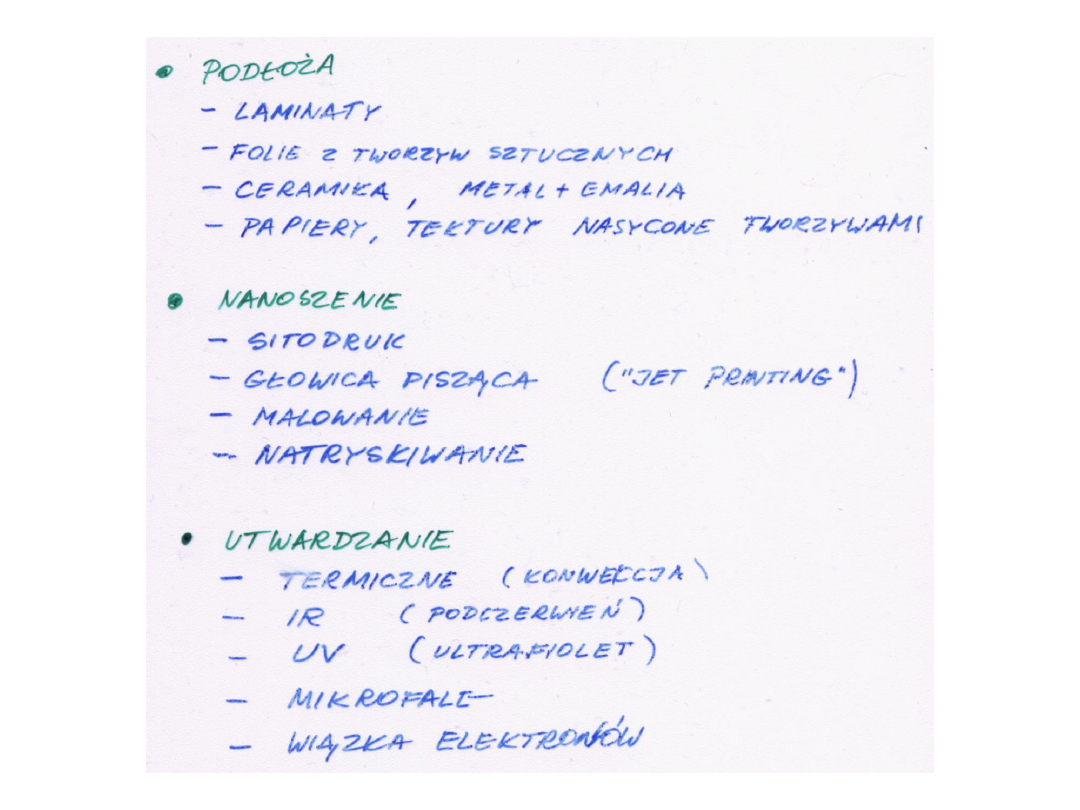 • PODŁOŻA
- LAMINATY
- FOLIE Z TWORZYW SZTUCZNYCH
- CERAMIKA, METAL + EMALIA
- PAPIERY, TEKTURY NASYCONE TWORZYWAMI
• NANOSZENIE
- SITODRUK
- GŁOWICA PISZĄCA ("JET PRINTING")
- MALOWANIE
- NATRYSKIWANIE
• UTWARDZANIE
- TERMICZNE (KONWEKCJA)
- IR (PODCZERWIEŃ)
- UV (ULTRAFIOLET)
- MIKROFALE
- WIĄZKA ELEKTRONÓW